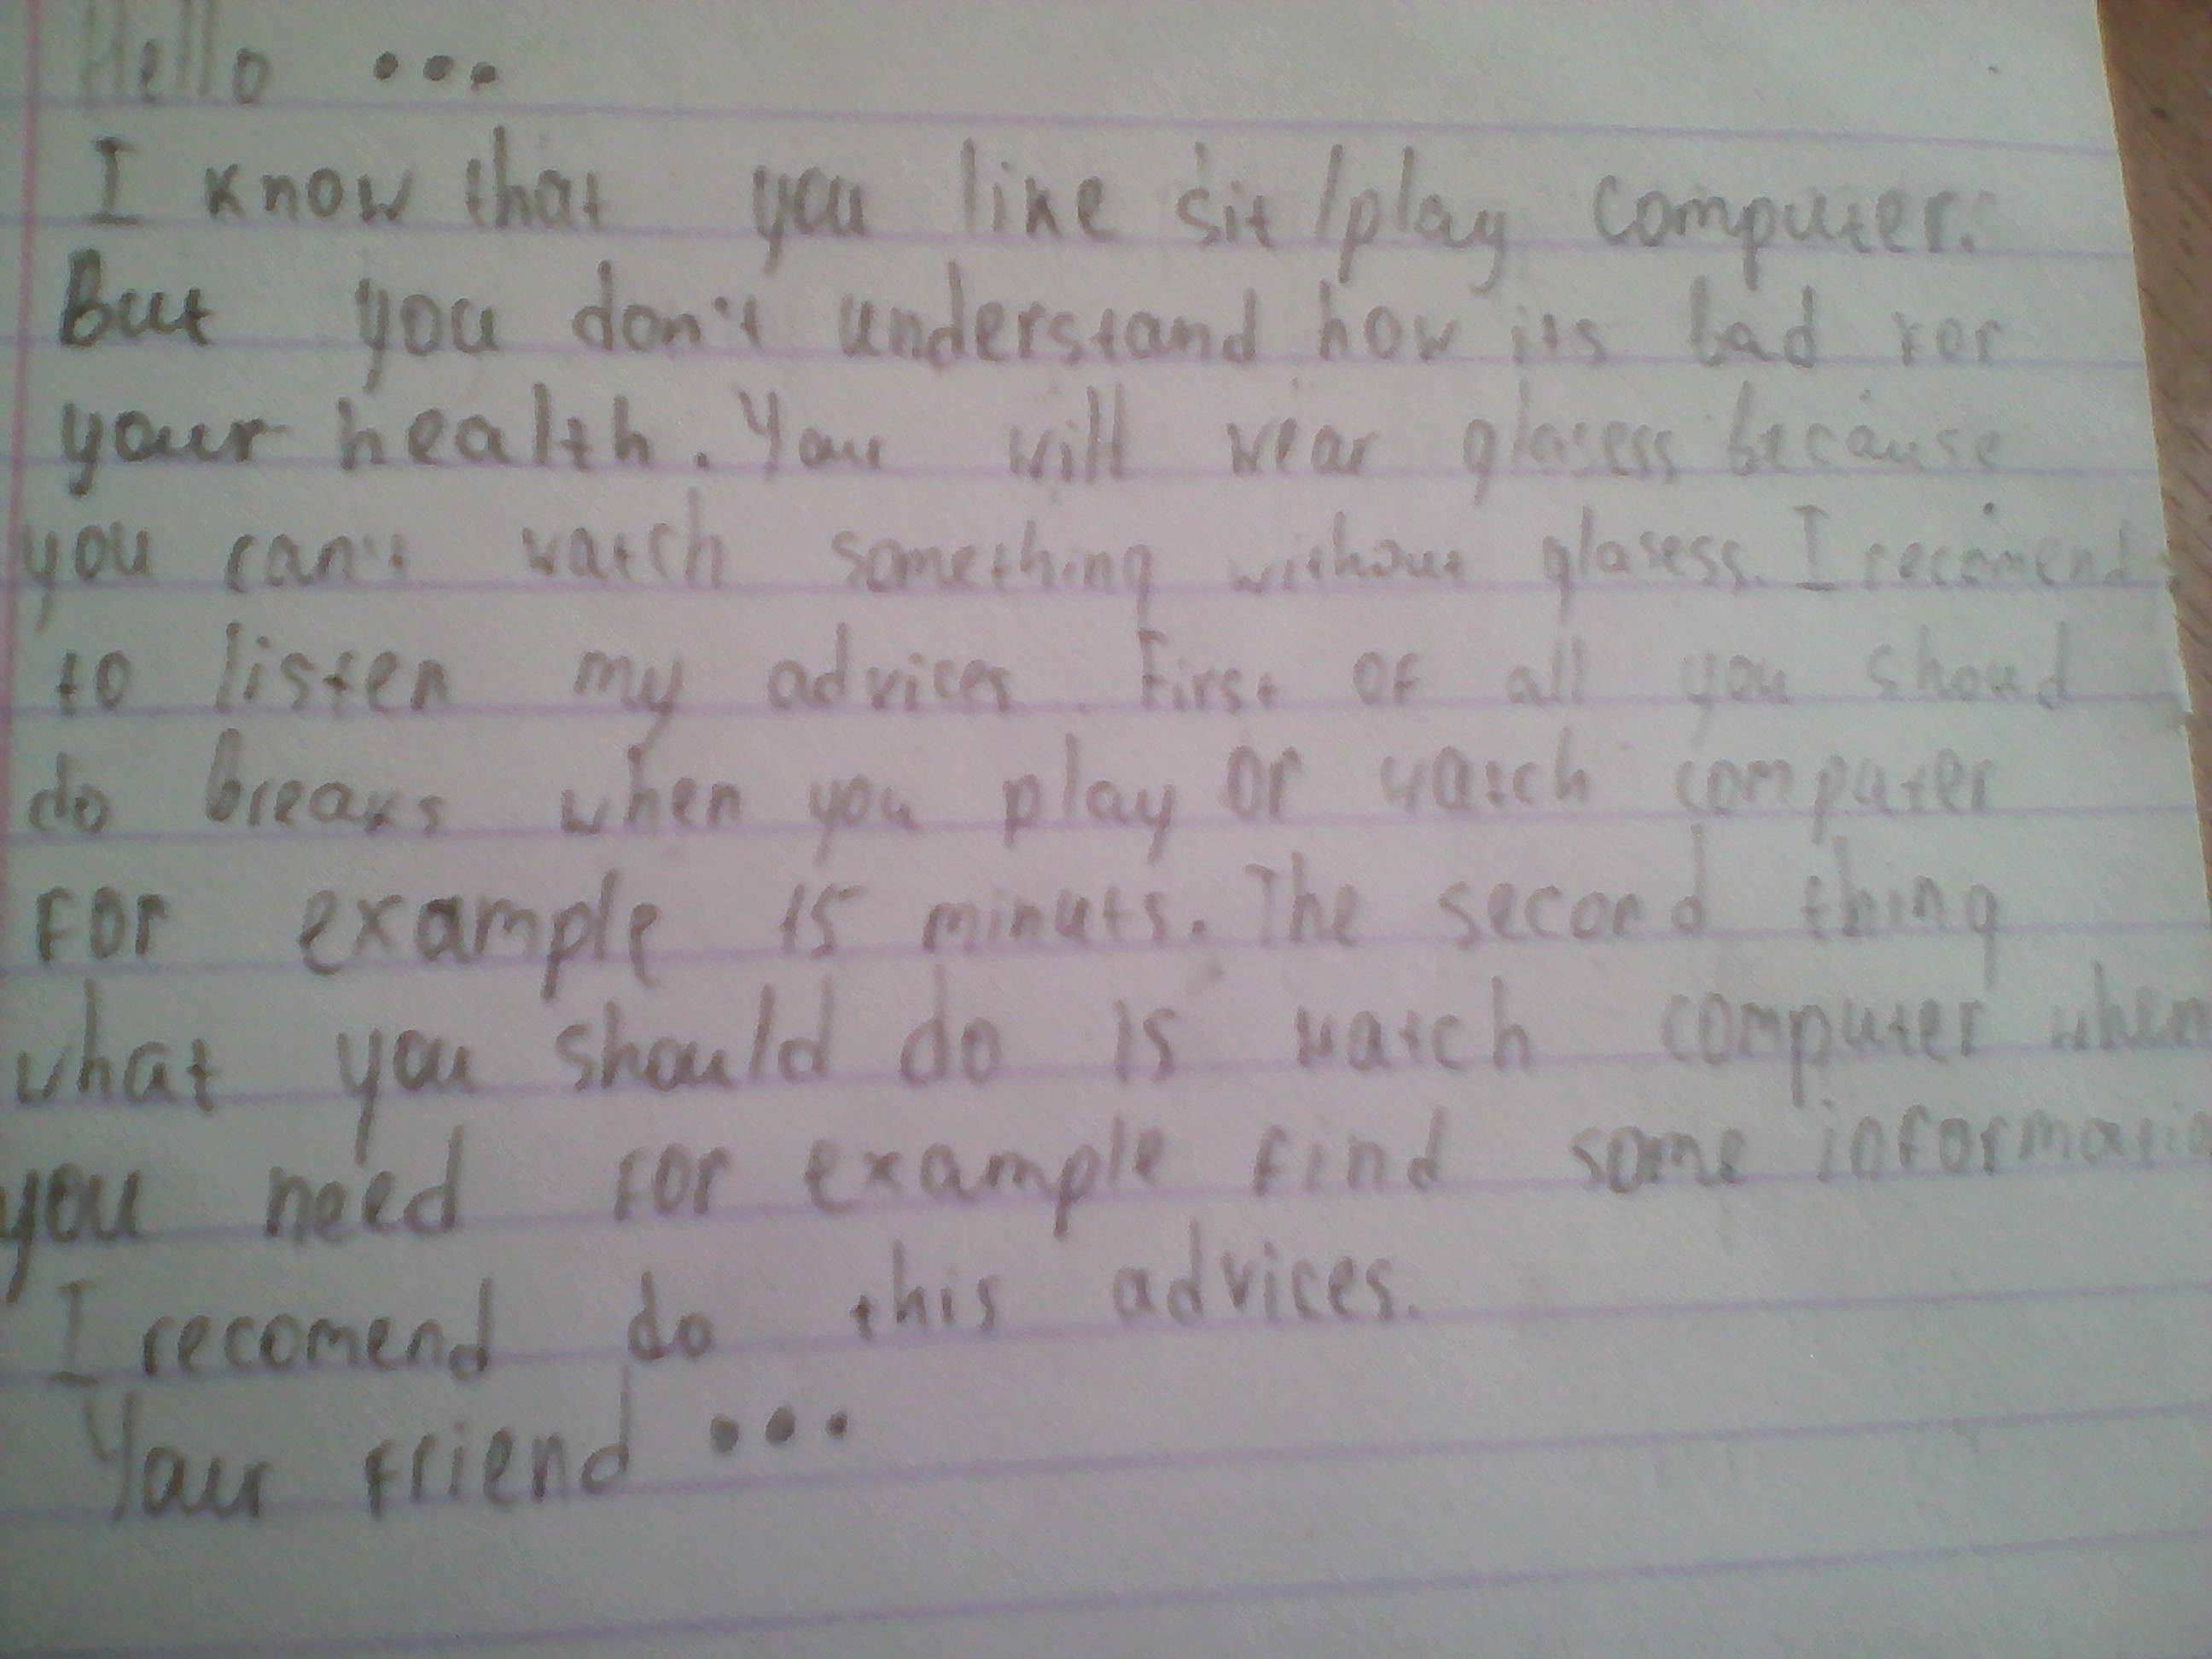 Hello •••
I know that you like sit/play computer.
But you don't understand how its bad for
your health. You will wear glasess because
you can't watch something without glasess. I recomend
to listen my advices. First of all you shoud
do breaks when you play or watch computer
For example 15 minuts. The second thing
what you should do is watch computer when
you need for example find some informatio
I recomend do this advices.
Your friend •••